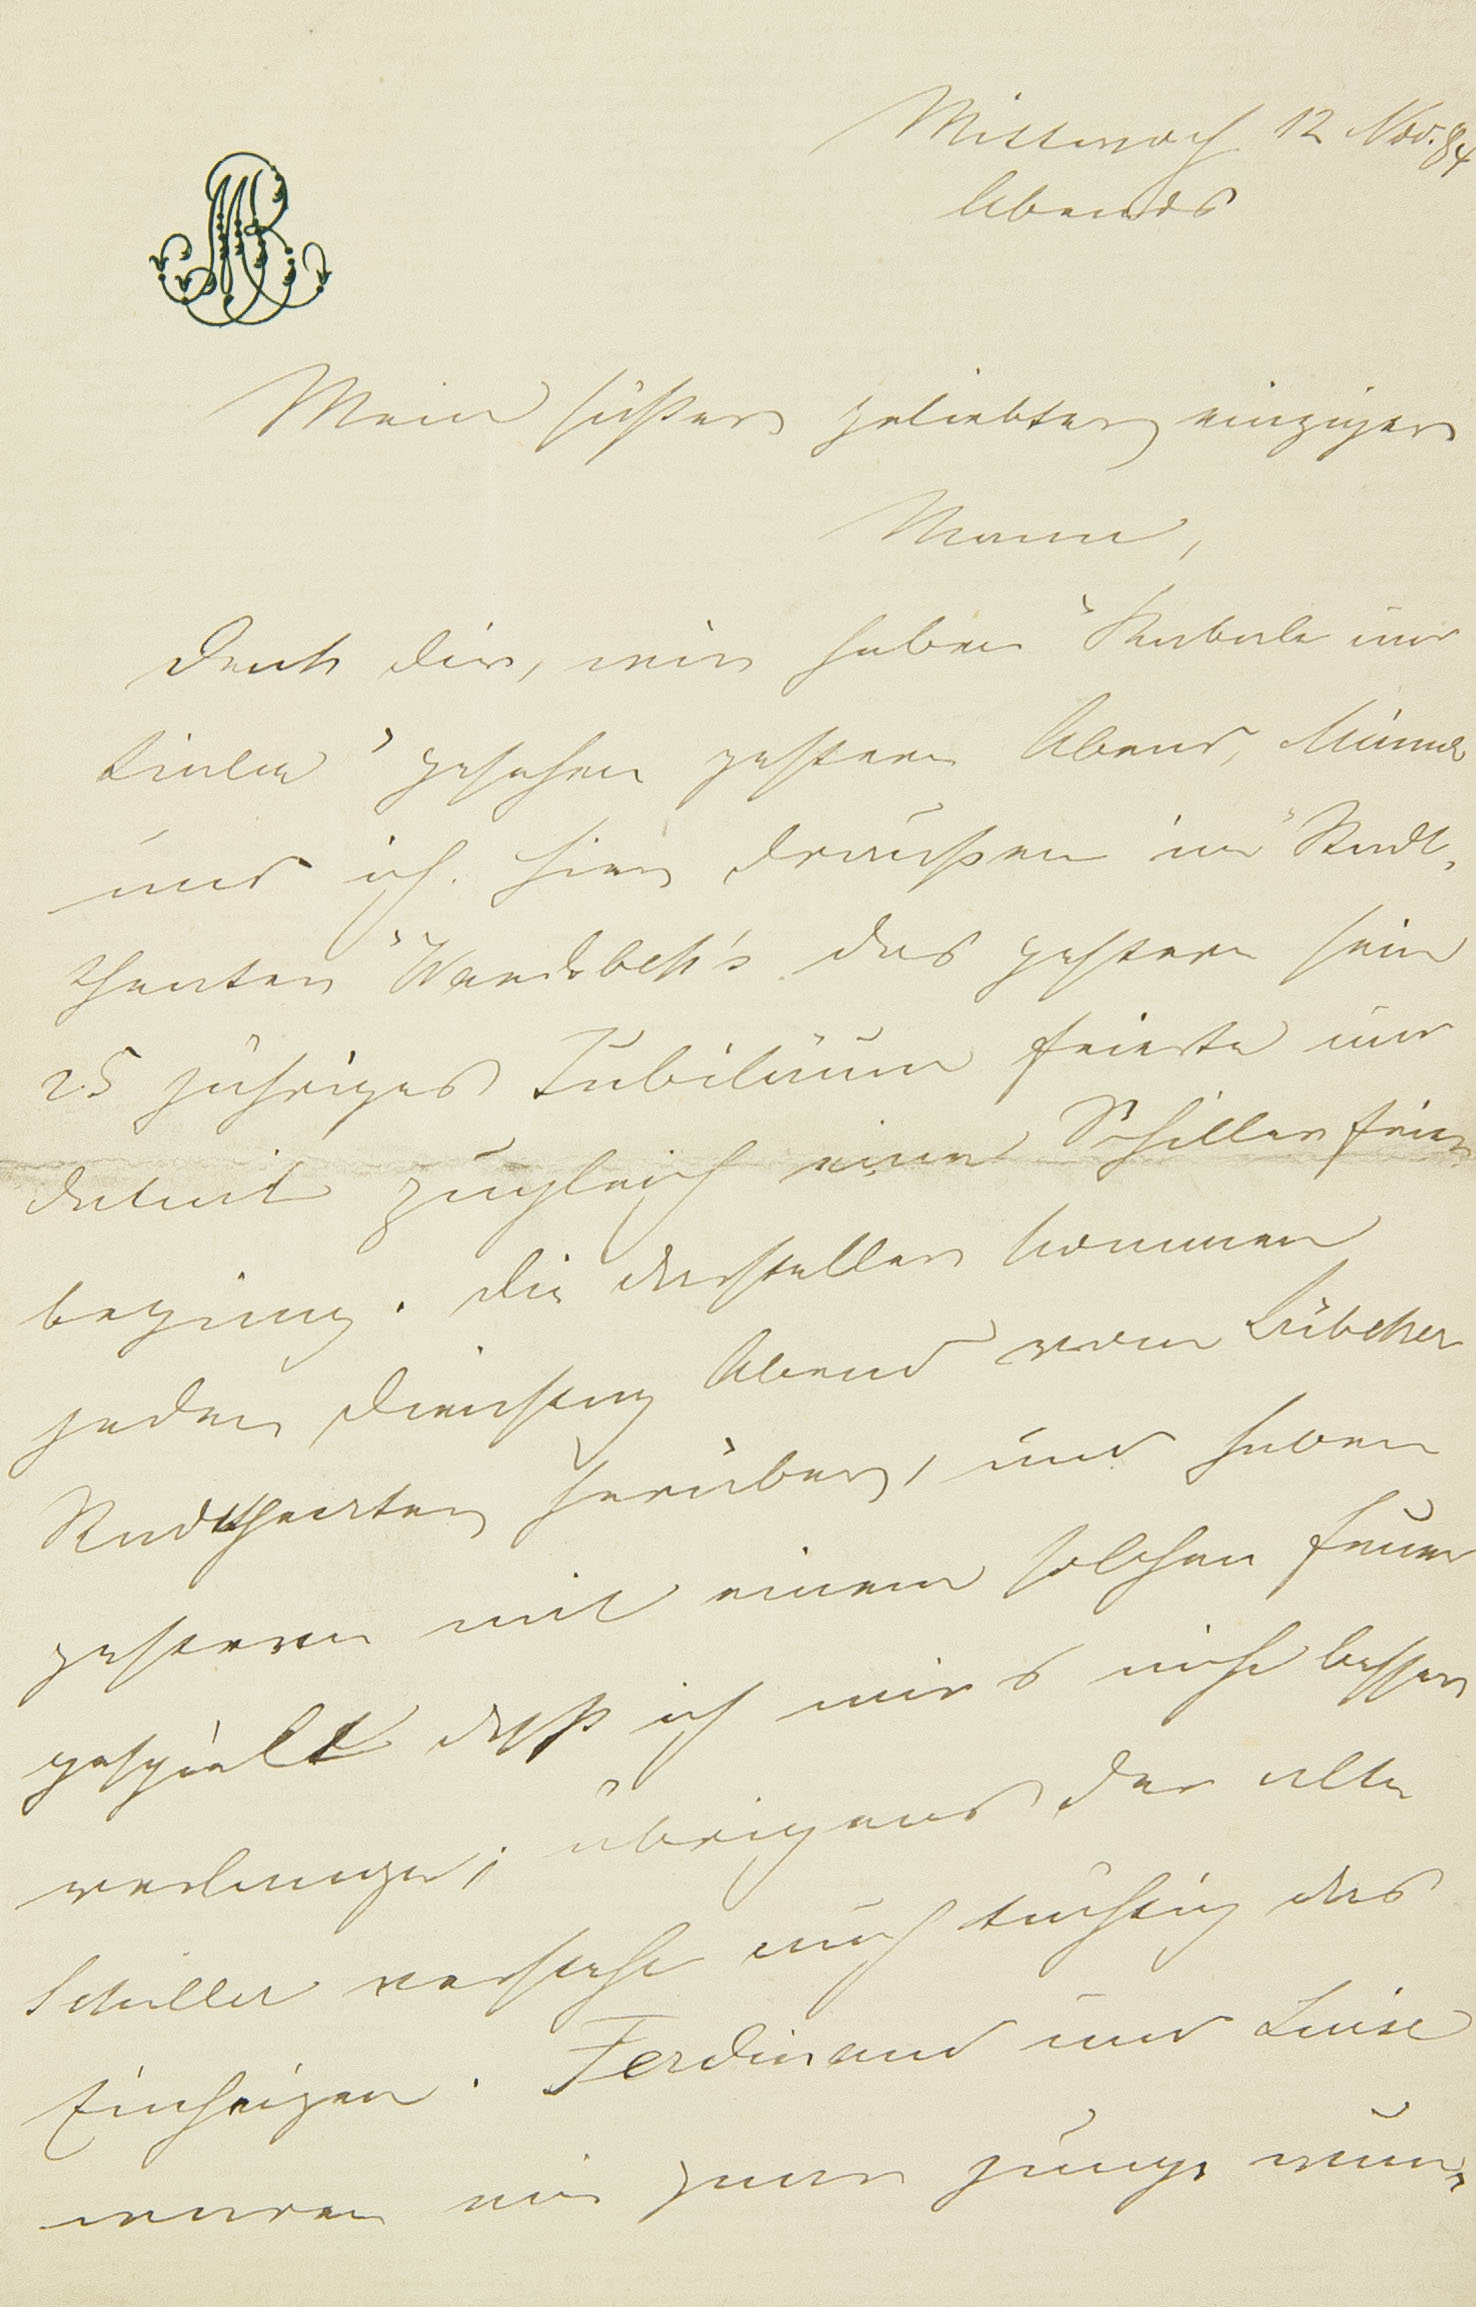 Mittwoch 12 Nov. 84
Abends
Mein süßer geliebter einziger
Mann,
Denk dir, wir haben "Kabale und
Liebe" gesehen gestern Abend, Mimi
und ich. hier draußen im "Stadt-
theater" Wandsbek's das gestern sein
25 jähriges Jubiläum feierte und
damit zugleich eine Schillerfeier
beging. Die Darsteller kommen
jeden Dienstag Abend vom Lübecker
Stadttheater herüber, und haben
gestern mit einem solchen Feuer
gespielt daß ich mirs nicht besser
verlange; übrigens der alte
Schiller versteht auch tüchtig das
Einheizen. Ferdinand und Luise
waren ein paar junge wun-